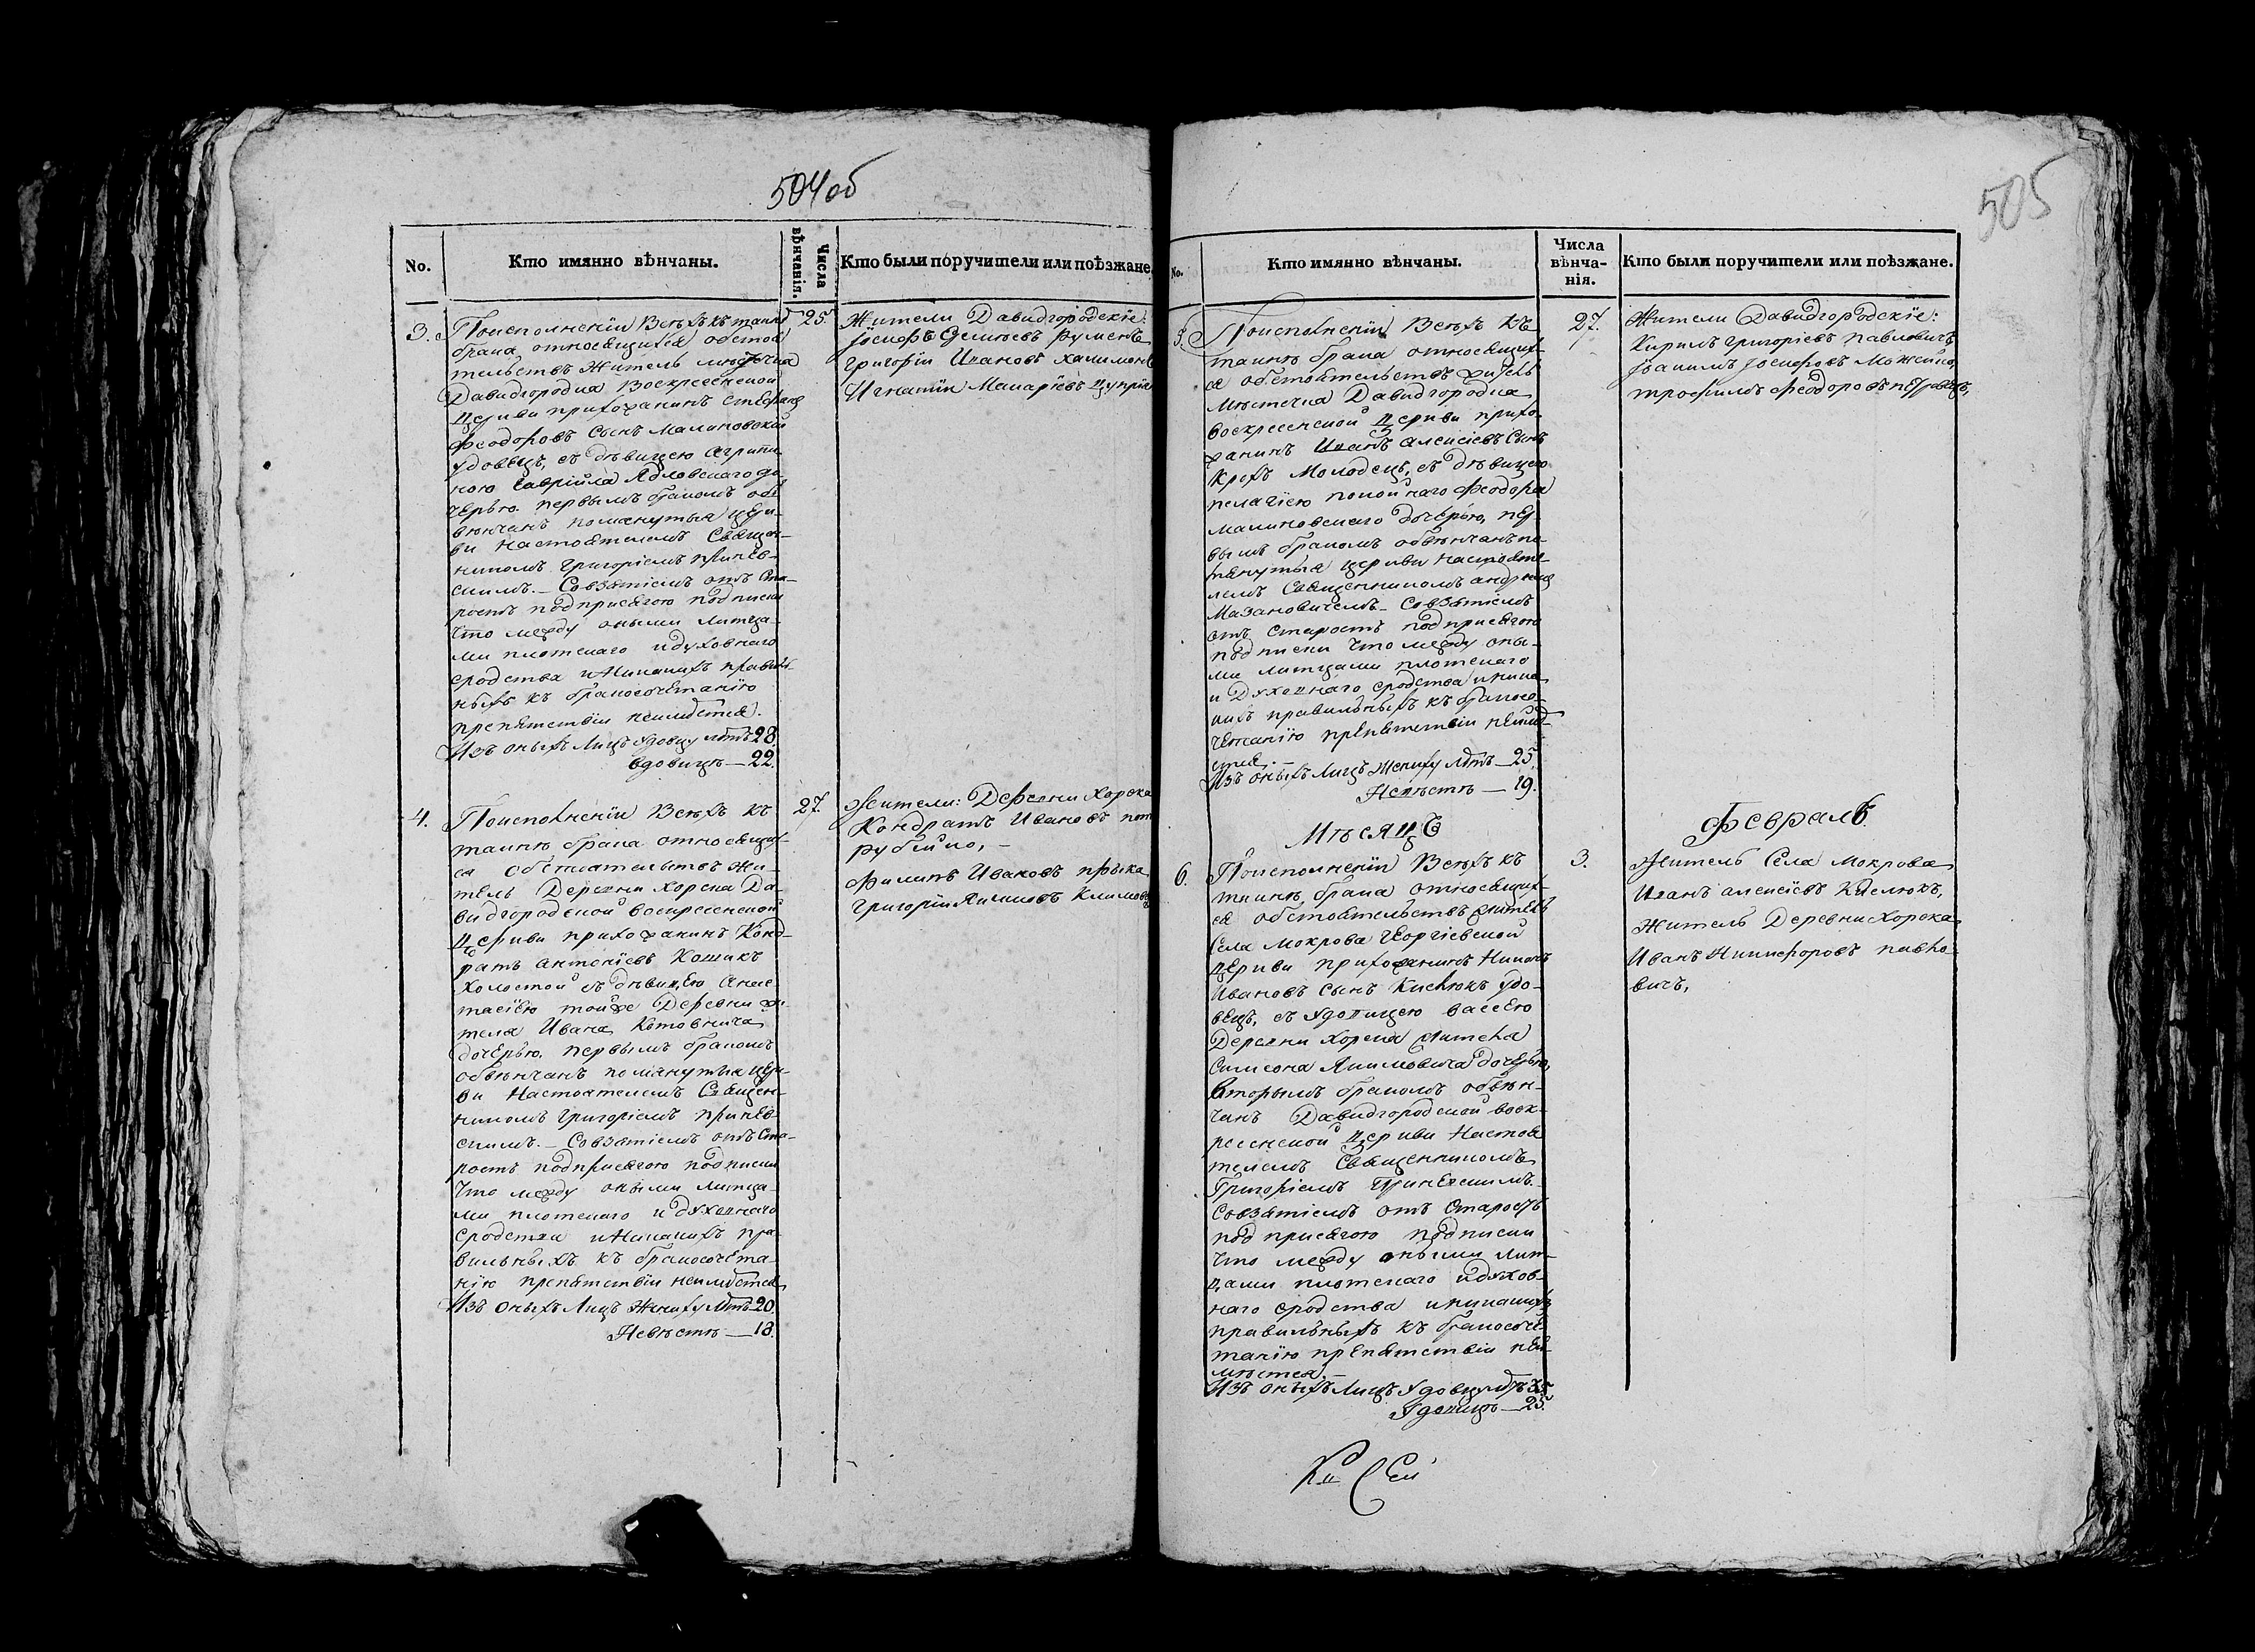 504об
No.
Кто имянно вѣнчаны.
Числа вѣнчанія.
Кто были поручители или поѣзжане.
3.
Поисполненіи Всѣхъ къ таинѣ
брака относящихся обстоя
тельствъ Житель мѣстечка
Давидгородка Воскресенской
Церкви прихожанинъ Стефанъ
Феодоровъ Сынъ Малиновскій
удовецъ, съ дѣвицею Агрипи
ною Гавріила Ядловскаго до
черью. первымъ бракомъ об
вѣнчанъ помянутыя церк
ви Настоятелемъ Священ-
никомъ Григоріемъ
Совзятіемъ отъ Ста-
ростъ подприсягою подписки
Что между оными литца-
ми плотскаго идуховнаго
сродства иНикакихъ правиль
ныхъ къ бракосочетанію
препятствіи неимѣется.
Изъ оныхъ Лицъ Удовцу лѣтъ 28.
Вдовицѣ — 22.
25.
Жители Давидгородскіе:
Іосифъ
Григорій Ивановъ
Игнатій Макаріевъ
4.
Поисполненіи Всѣхъ къ
таинѣ брака относящих
ся обстоятельствъ жи-
тель Деревни Хорска Да-
видгородской воскресенской
Церкви прихожанинъ Конд-
ратъ Антоніевъ Кошикъ
Холостой съ дѣвицею Анас-
тасіею тойже Деревни жи
теля Ивана Котовича
дочерью, первымъ бракомъ
обвѣнчанъ помянутыя церк
ви Настоятелемъ Священ-
никомъ Григоріемъ
Совзятіемъ отъ Ста-
ростъ подприсягою подписки
Что между оными литца-
ми плотскаго идуховнаго
Сродства иНикакихъ пра-
вильныхъ къ бракосочета-
нію препятствіи неимѣется
Изъ оныхъ Лицъ Жениху лѣтъ 20.
Невѣстѣ — 18.
27.
Жители: Деревни Хорска
Кондратъ Ивановъ
Филипъ Ивановъ
Григорій Якимовъ
505
No.
Кто имянно вѣнчаны.
Числа
вѣнча-
нія.
Кто были поручители или поѣзжане.
5.
Поисполненіи Всѣхъ къ
таинѣ брака относящих-
ся обстоятельствъ житель
Мѣстечка Давидгородка
воскресенской Церкви прихо-
жанинъ Иванъ Алексіевъ Сынъ
Крехъ Молодецъ, съ дѣвицею
пелагіею покойнаго Феодора
малиновскаго дочерью, пер-
вымъ бракомъ обвѣнчанъ по-
мянутыя церкви Настояте-
лемъ Священникомъ андреемъ
Мазановичемъ — Совзятіемъ
отъ Старостъ подприсягою
подписки Что между оны-
ми литцами плотскаго
и Духовнаго сродства иника-
кихъ правильныхъ къ бракосо-
четанію препятствіи неимѣ-
ется. —
Изъ оныхъ Лицъ Жениху лѣтъ — 25.
Невѣстѣ — 19.
27.
Жители Давидгородскіе:
Кирилъ Григоріевъ Павловичъ
Іоакимъ Іосифовъ Можейко,
трофимъ Феодоровъ
Мѣсяцъ
Февраль
6.
Поисполненіи Всѣхъ къ
таинѣ, брака относящих-
ся обстоятельствъ житель
Села Мокрова Георгіевской
церкви прихожанинъ
Ивановъ сынъ Кислюкъ удо-
вецъ, съ Удовицею Вассею
Деревни Хорска жителя
Симеона Якимовича дочерью,
вторымъ бракомъ обвѣн-
чанъ Давидгородской воск-
ресенской Церкви Настоя
телемъ Священникомъ
Григоріемъ
Совзятіемъ отъ Старостъ
под присягою подписки
Что между оными лит-
цами плотскаго идухов-
наго сродства иникакихъ
правильныхъ къ бракосоче
танію препятствіи неи-
мѣется, —
Изъ оныхъ Лицъ Удовцу лѣтъ 35
Удовицѣ — 25.
3.
Житель Села Мокрова
Иванъ алексіевъ Кислюкъ,
Житель Деревни Хорска
Иванъ Никифоровъ павло-
вичъ,